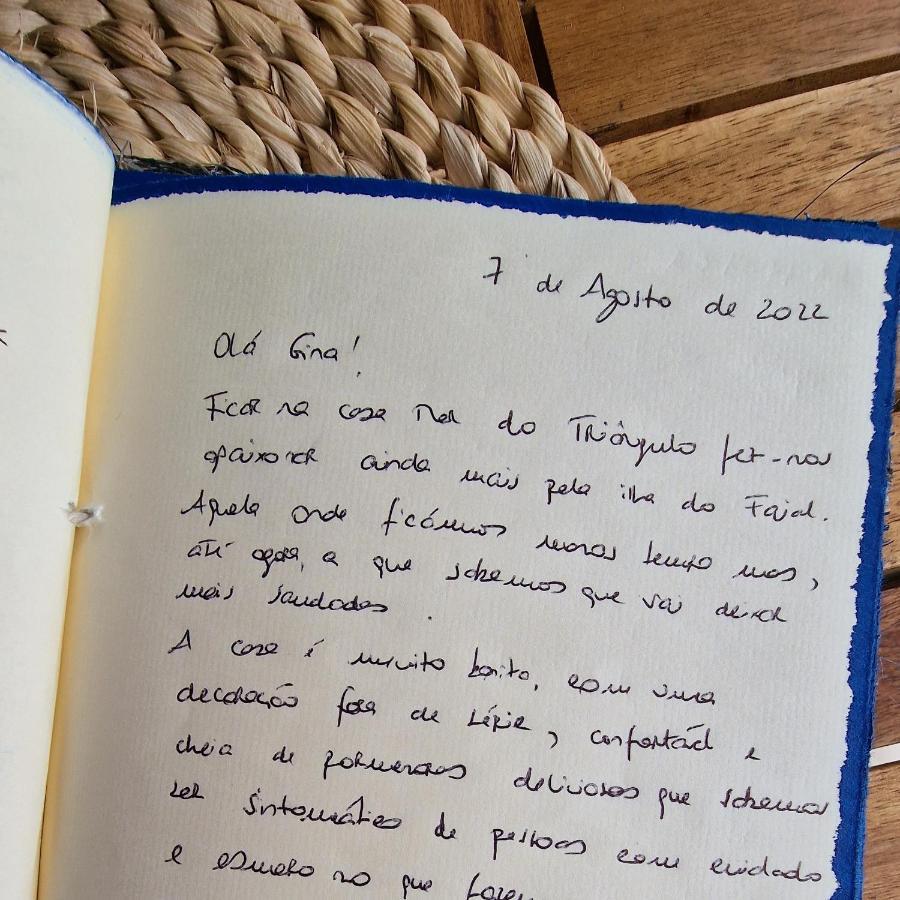 7 de Agosto de 2022
Olá Gina!
Ficar na casa Mar do Triângulo fez-nos
apaixonar ainda mais pela ilha do Faial.
Aquela onde ficámos menos tempo mas,
até agora, a que sabemos que vai deixar
mais saudades.
A casa é muito bonita, com uma
decoração fora de série, confortável e
cheia de pormenores deliciosos que sabemos
ser sintomático de pessoas com cuidado
e esmero no que fazem